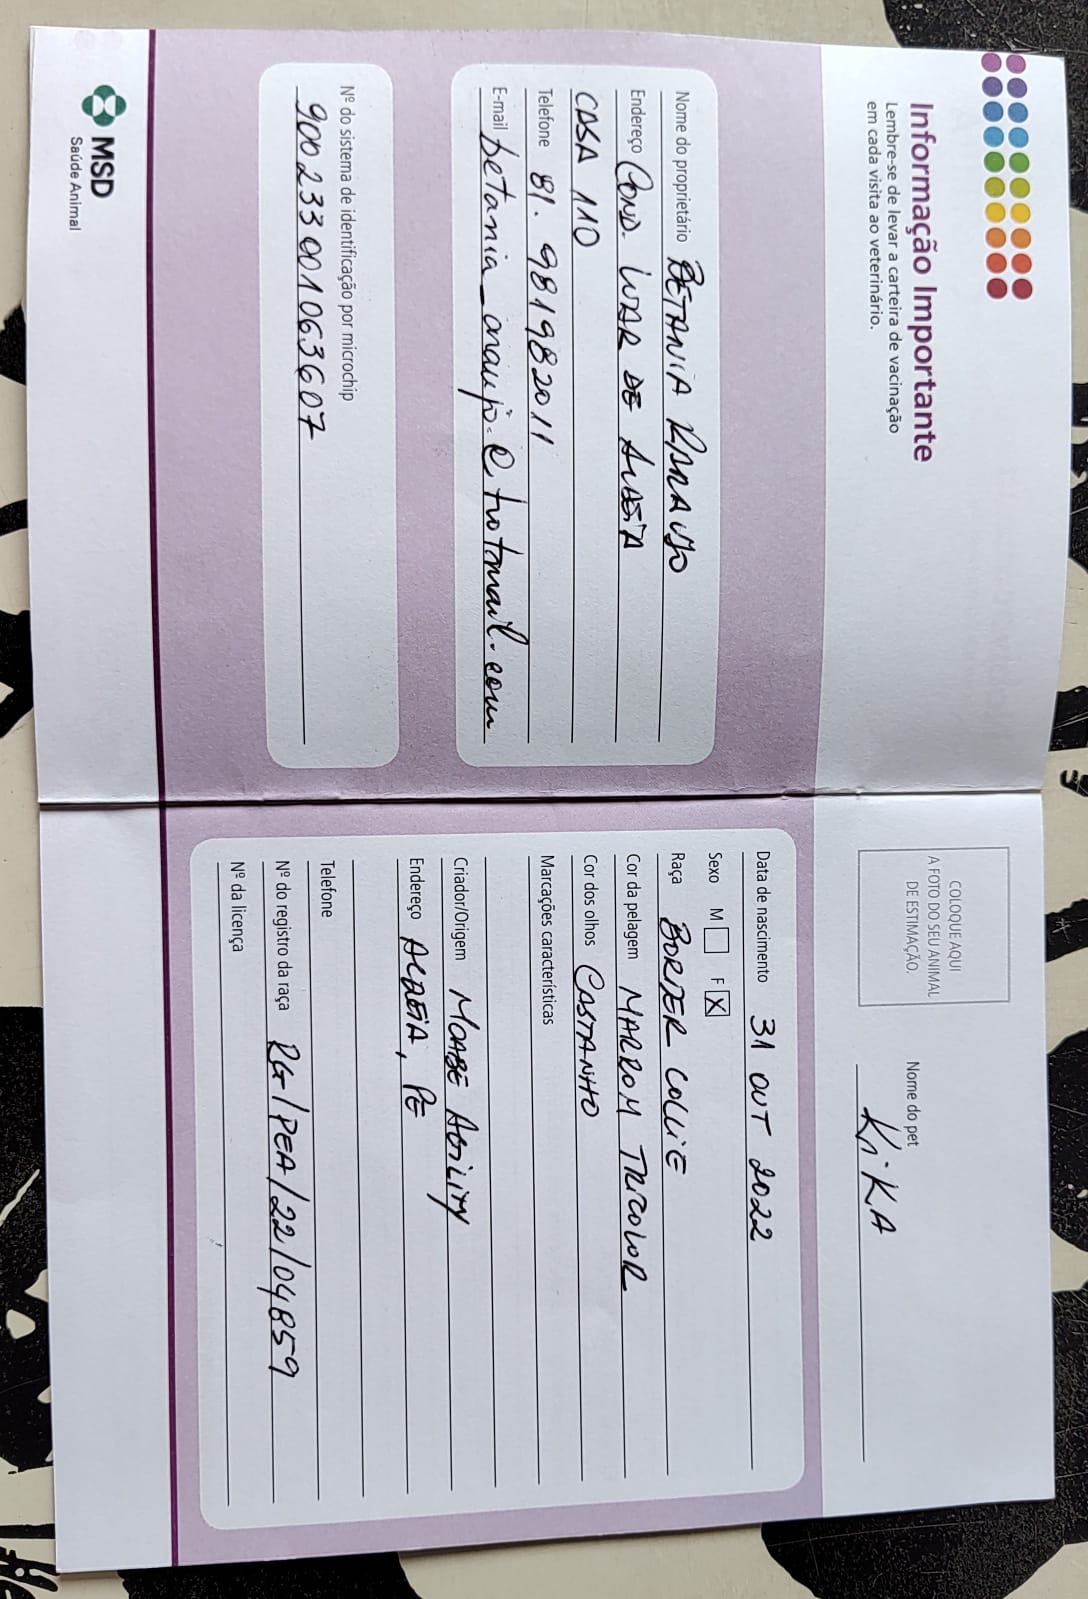 Informação Importante
Lembre-se de levar a carteira de vacinação
em cada visita ao veterinário.
Nome do proprietário BETANIA ARAUJO
Endereço COND. LUAR DE ALDEIA
CASA 110
Telefone 81. 981982011
E-mail betania_araujo@hotmail.com
Nº do sistema de identificação por microchip
900 233 001063607
MSD
Saúde Animal
COLOQUE AQUI
A FOTO DO SEU ANIMAL
DE ESTIMAÇÃO.
Nome do pet
KIKA
Data de nascimento 31 OUT 2022
Sexo M F X
Raça BORDER COLLIE
Cor da pelagem MARROM TRICOLOR
Cor dos olhos CASTANHO
Marcações características
Criador/Origem MOABE AGILITY
Endereço ALDEIA, PE
Telefone
Nº do registro da raça RG/PEA/22/04859
Nº da licença